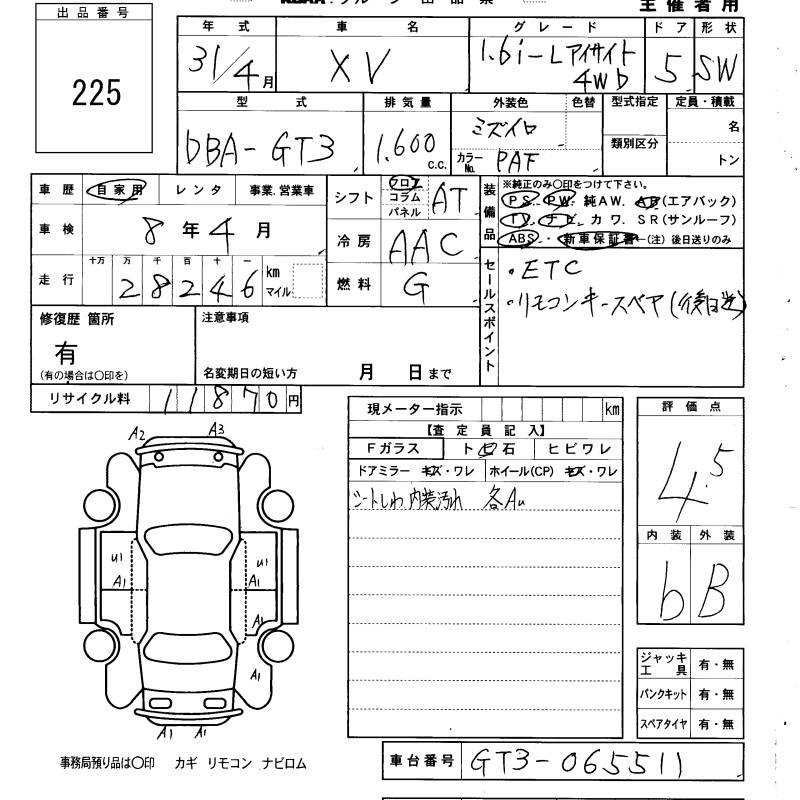 出品番号
主催者用
225
年式 車名 グレード ドア 形状
31/4月 XV 1.6i-Lアイサイト 4WD 5 SW
型式 排気量 外装色 色替 型式指定 定員・積載
DBA-GT3 1.600 c.c. ミズイロ 名
カラーNo. PAF 類別区分 トン
車歴 自家用 レンタ 事業.営業車
シフト フロア コラム パネル AT
装備品 ※純正のみ○印をつけて下さい。
PS PW 純AW. AB(エアバック)
TV ナビ カワ. SR(サンルーフ)
ABS. 新車保証書←(注)後日送りのみ
車検 8年4月
冷房 AAC
走行 十万 万 千 百 十 一
28246 km マイル
燃料 G
セールスポイント
・ETC
・リモコンキースペア(後日送)
修復歴 箇所
有
(有の場合は○印を)
注意事項
名変期日の短い方 月 日まで
リサイクル料 11870円
現メーター指示 km
【査定員記入】
Fガラス ト ビ 石 ヒビワレ
ドアミラー キズ・ワレ ホイール(CP) キズ・ワレ
シートしわ 内装汚れ 各Au
評価点
4.5
内装 外装
b B
A2 A3
U1 U1
A1 A1
A1
A1
A1 A1
ジャッキ工具 有・無
パンクキット 有・無
スペアタイヤ 有・無
事務局預り品は○印 カギ リモコン ナビロム
車台番号 GT3-065511